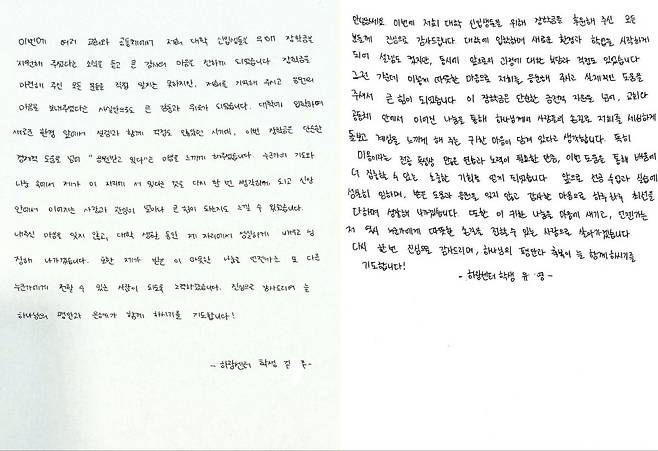 이번에 여러 교회와 공동체에서 저희 대학 신입생들을 위해 장학금을
지원해 주셨다는 소식을 듣고 큰 감사의 마음을 전하게 되었습니다. 장학금을
마련해 주신 모든 분들을 직접 알지는 못하지만, 저희를 기억해 주시고 응원의
마음을 보내주셨다는 사실만으로도 큰 감동과 위로가 되었습니다. 대학에 입학하며
새로운 환경 앞에서 설렘과 함께 걱정도 많았던 시기에, 이번 장학금은 단순한
경제적 도움을 넘어 "응원받고 있다"는 마음을 느끼게 해주었습니다. 누군가의 기도와
나눔 속에서 제가 이 자리에 서 있다는 것을 다시 한 번 생각하게 되고 신앙
안에서 이어지는 사랑과 관심이 얼마나 큰 힘이 되는지도 느낄 수 있었습니다.
내주신 마음을 잊지 않고, 대학 생활 동안 제 자리에서 성실하게 배우고 성
장해 나가겠습니다. 또한 제가 받은 이 따뜻한 나눔을 언젠가는 또 다른
누군가에게 전할 수 있는 사람이 되도록 노력하겠습니다. 진심으로 감사드리며 늘
하나님의 평안과 은혜가 함께 하시기를 기도합니다!
-하람센터 학생 김 주-
안녕하세요 이번에 저희 대학 신입생들을 위해 장학금을 후원해 주신 모든
분들께 진심으로 감사드립니다. 대학에 입학하며 새로운 환경과 학업을 시작하게
되어 설렘도 컸지만, 동시에 앞으로의 과정에 대한 부담과 걱정도 있었습니다
그런 가운데 이렇게 따뜻한 마음으로 저희를 응원해 주시고 실제적인 도움을
주셔서 큰 힘이 되었습니다 이 장학금은 단순한 금전적 지원을 넘어, 교회와
공동체 안에서 이어진 나눔을 통해 하나님께서 사랑의 손길로 저희를 세심하게
돌보고 계심을 느끼게 해 주는 귀한 마음이 담겨 있다고 생각합니다. 특히
미용이라는 전공 특성상 많은 연습과 노력이 필요한 만큼, 이번 도움을 통해 배움에
더 집중할 수 있는 소중한 기회를 얻게 되었습니다 앞으로 전공 수업과 실습에
성실히 임하며, 받은 도움과 응원을 잊지 않고 감사한 마음으로 하루하루 최선을
다하며 성장해 나가겠습니다. 또한 이 귀한 나눔을 마음에 새기고, 언젠가는
저 역시 누군가에게 따뜻한 손길을 전할 수 있는 사람으로 살아가겠습니다
다시 한 번 진심으로 감사드리며, 하나님의 평안과 축복이 늘 함께하시기를
기도합니다!
-하람센터 학생 유 영-